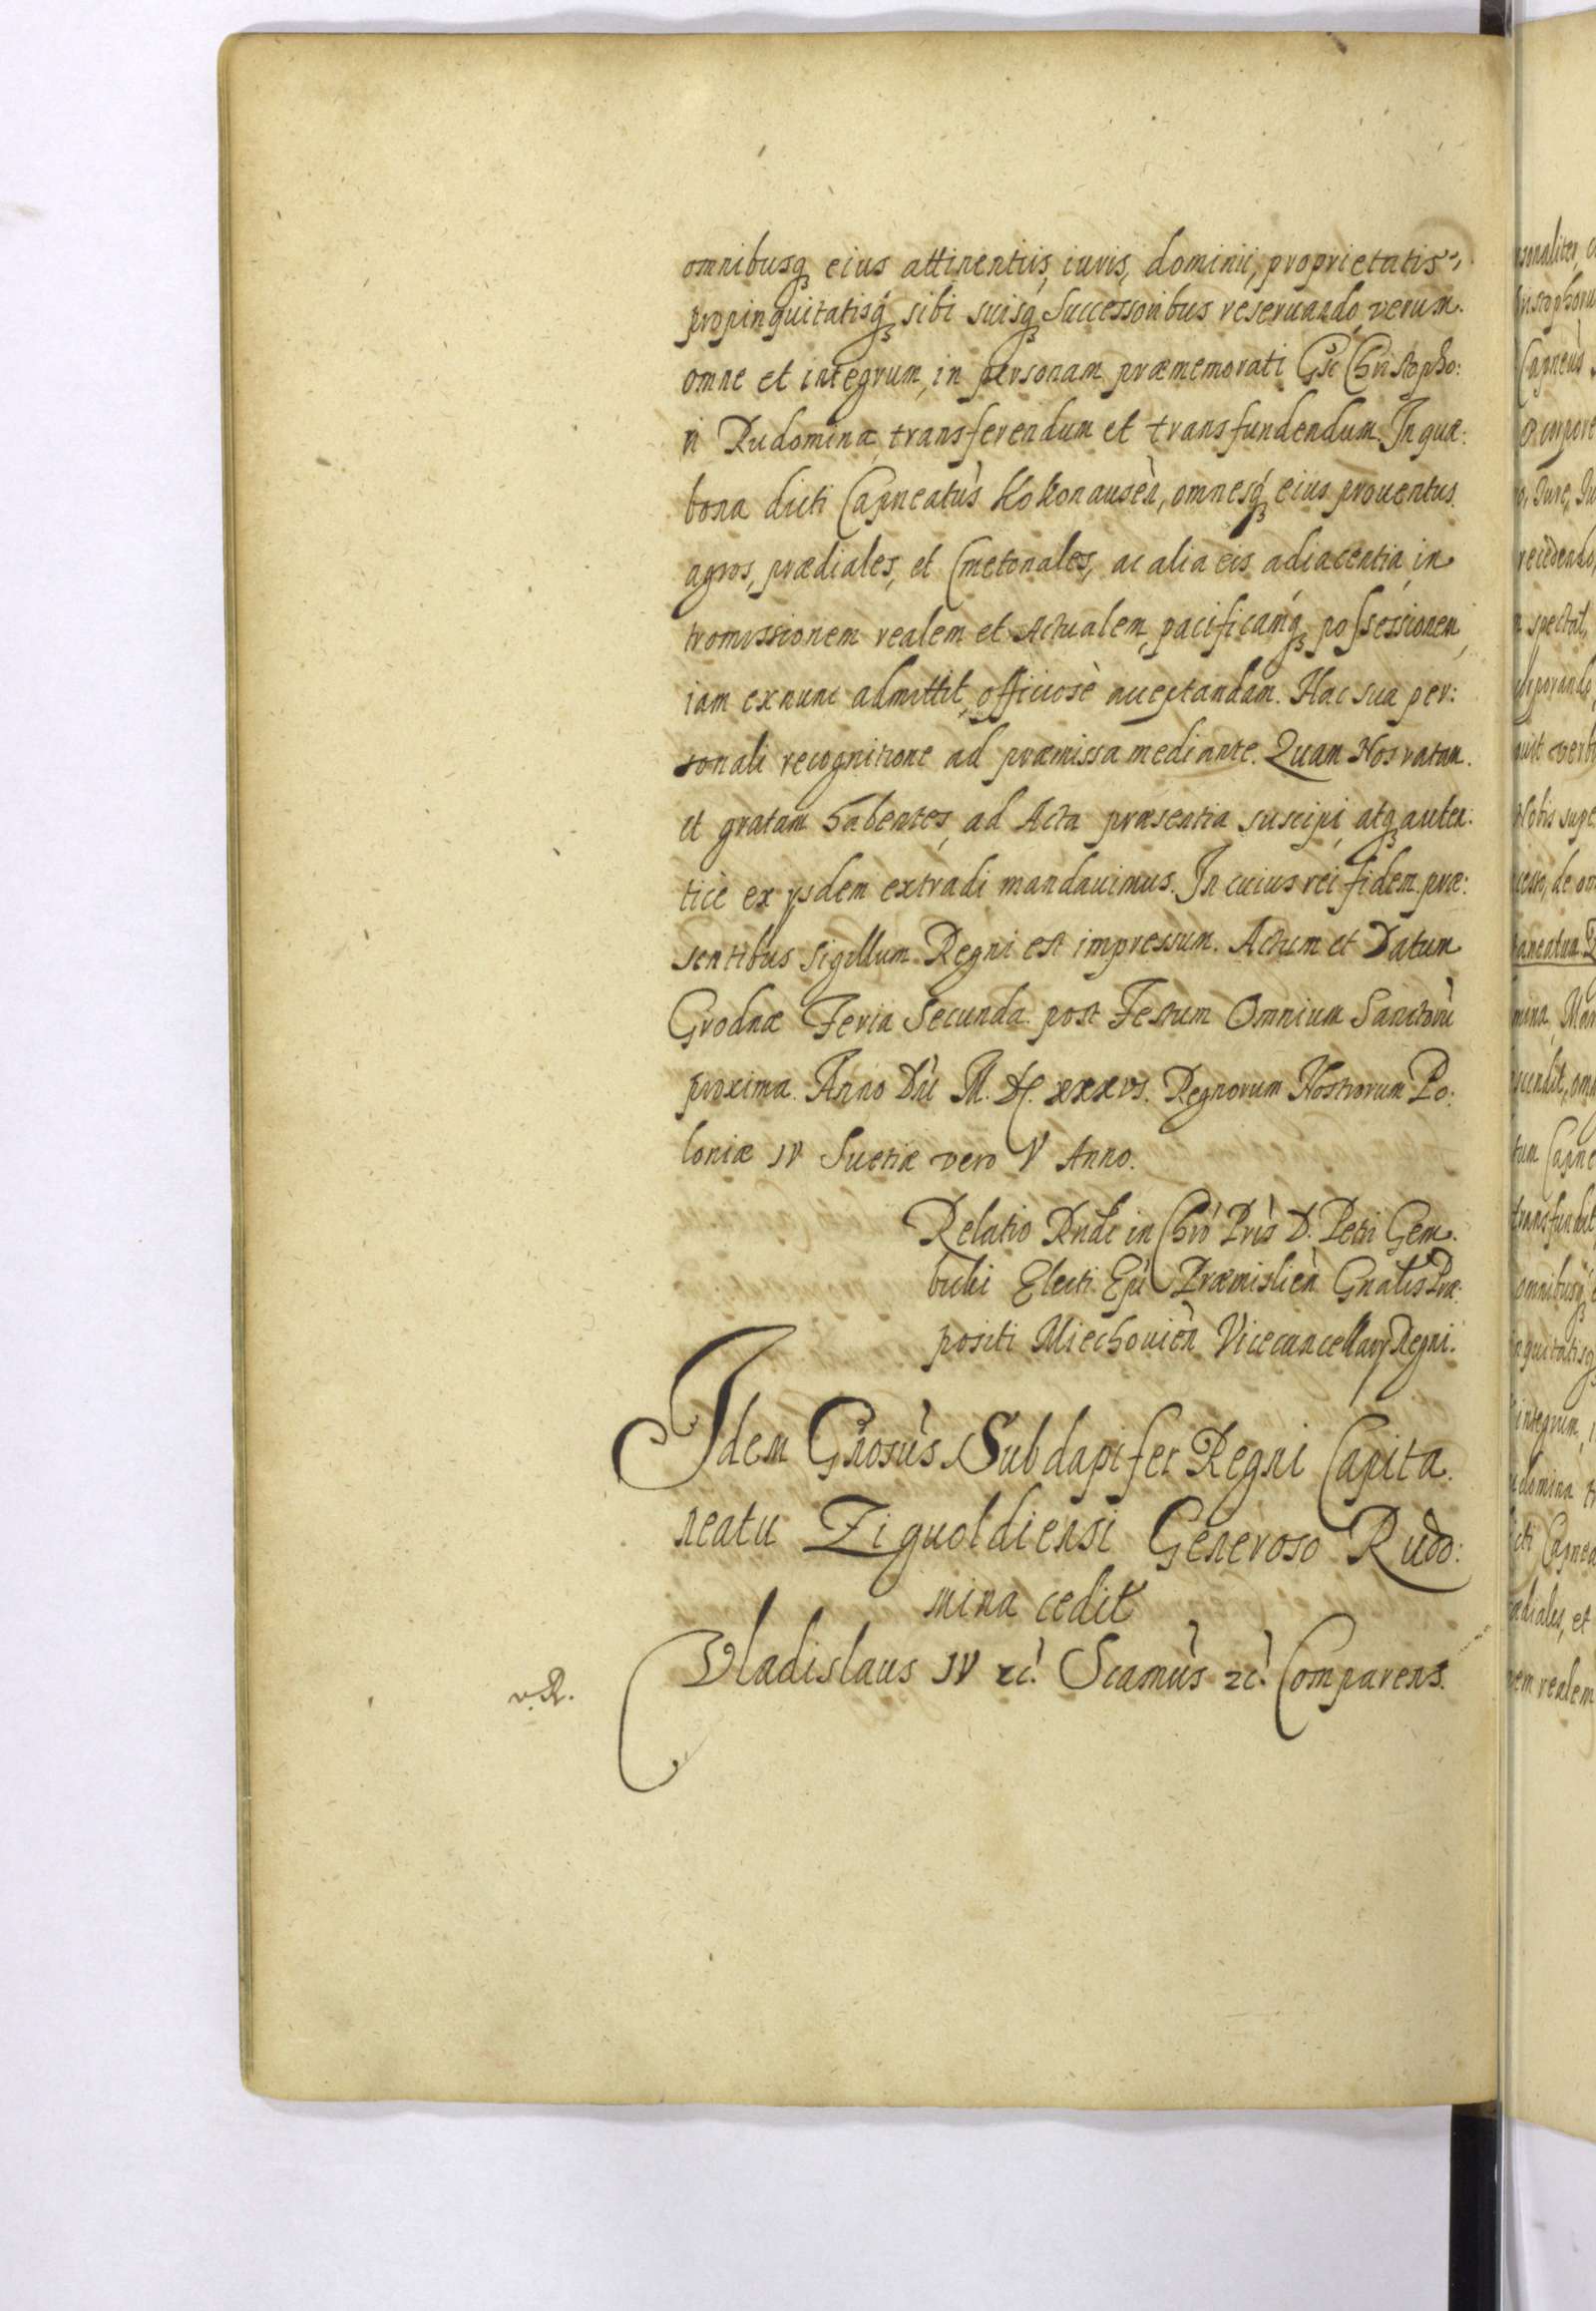 omnibusq, eius attinentiis, iuris, dominii, proprietatis,
propinquitatisq, sibi suisq, Successoribus reseruando, verum
omne et integrum, in personam præmemorati Gsi Christopho:
ri Rudomina, transferendum et transfundendum. In quæ:
bona dicti Capneatùs Kokonausèn, omnesq, eius prouentus
agros, prædiales, et Cmetonales, ac alia eis adiacentia, in
tromissionem realem et Actualem, pacificamq, possessionem,
iam exnunc admittit, officiosè acceptandam. Hac sua per:
sonali recognitione ad præmissa mediante. Quam Nos ratam
et gratam habentes, ad Acta præsentia suscipi, atq, auten:
ticè ex ysdem extradi mandauimus. In cuius rei fidem præ:
sentibus Sigillum Regni est impressum. Actum et Datum
Grodnæ Feria Secunda post Festum Omnium Sanctorù
proxima. Anno Dni M. DC. xxxvs. Regnorum Nostrorum Po:
loniæ IV Suetiæ vero V Anno.
Relatio Rndi in Chro Pris D. Petri Gem
bicki Electi Epi Præmislien Gnalis Præ:
positi Miechouièn Vicecancellarÿ Regni.
Idem Gnosùs Subdapifer Regni Capita
neatu Ziguoldiensi Generoso Rudo:
mina cedit
Vladislaus IV zc. Scamùs zc. Comparens.
v.R.